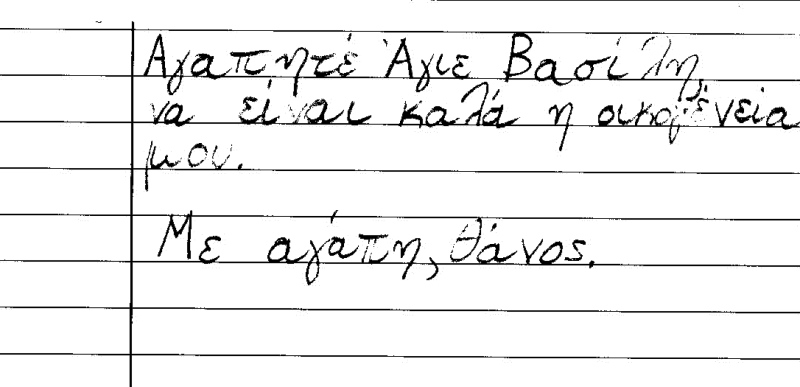 Αγαπητέ Άγιε Βασίλη,
να είναι καλά η οικογένεια
μου.
Με αγάπη, Θάνος.